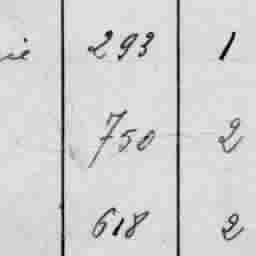 ie 293 1
750 2
618 2